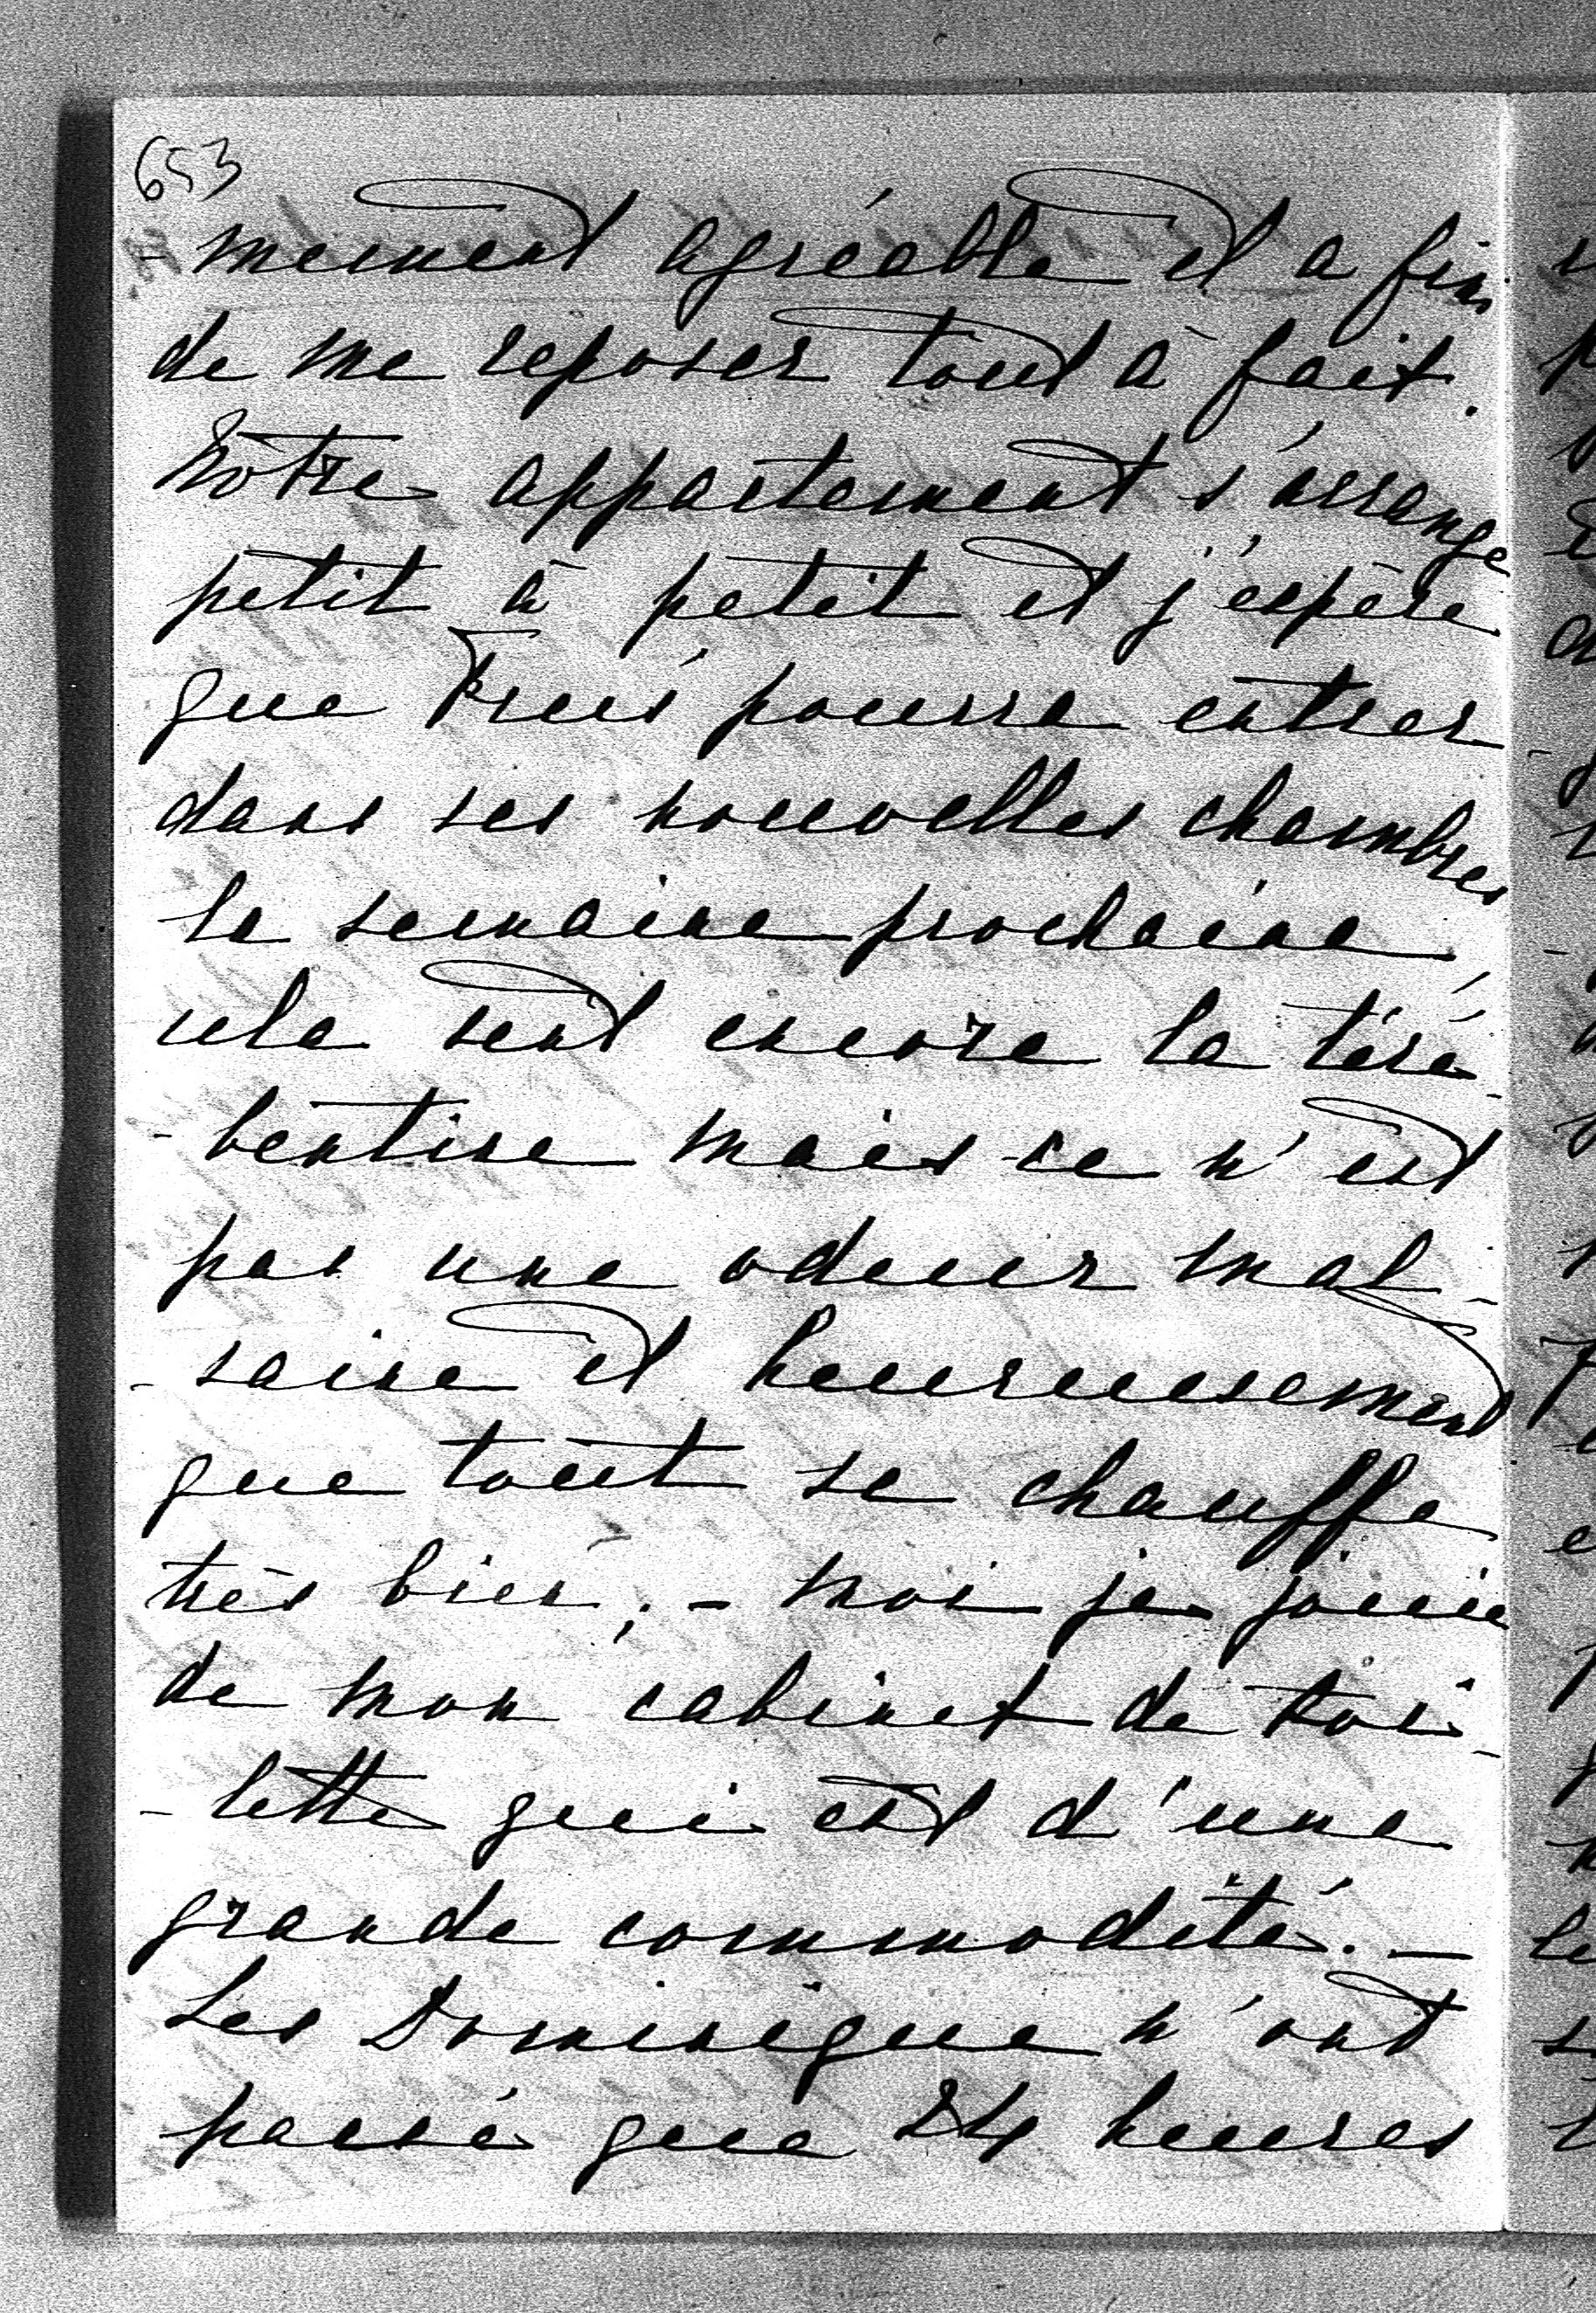 653
mement agréable et a fin
de me reposer tout à fait.
Notre appartement s'arrange
petit à petit et j'espère
que pourra entrer
dans ses nouvelles chambres
la semaine prochaine,
cela sent encore la téré-
-bentine mais ce n'est
pas une odeur mal-
-saine et heureusement
que tout se chauffe
très bien; - moi je jouie
de mon cabinet de toi-
-lette qui est d'une
grande commodité. —
Les Dominique n'ont
passé que 24 heures